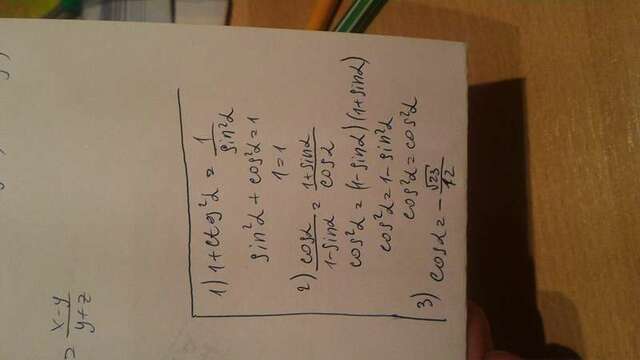 = x-y / y+z
1) 1+ctg²α = 1 / sin²α
sin²α + cos²α = 1
1 = 1
2) cosα / 1-sinα = 1+sinα / cosα
cos²α = (1-sinα)(1+sinα)
cos²α = 1-sin²α
cos²α = cos²α
3) cosα = - √23 / 12